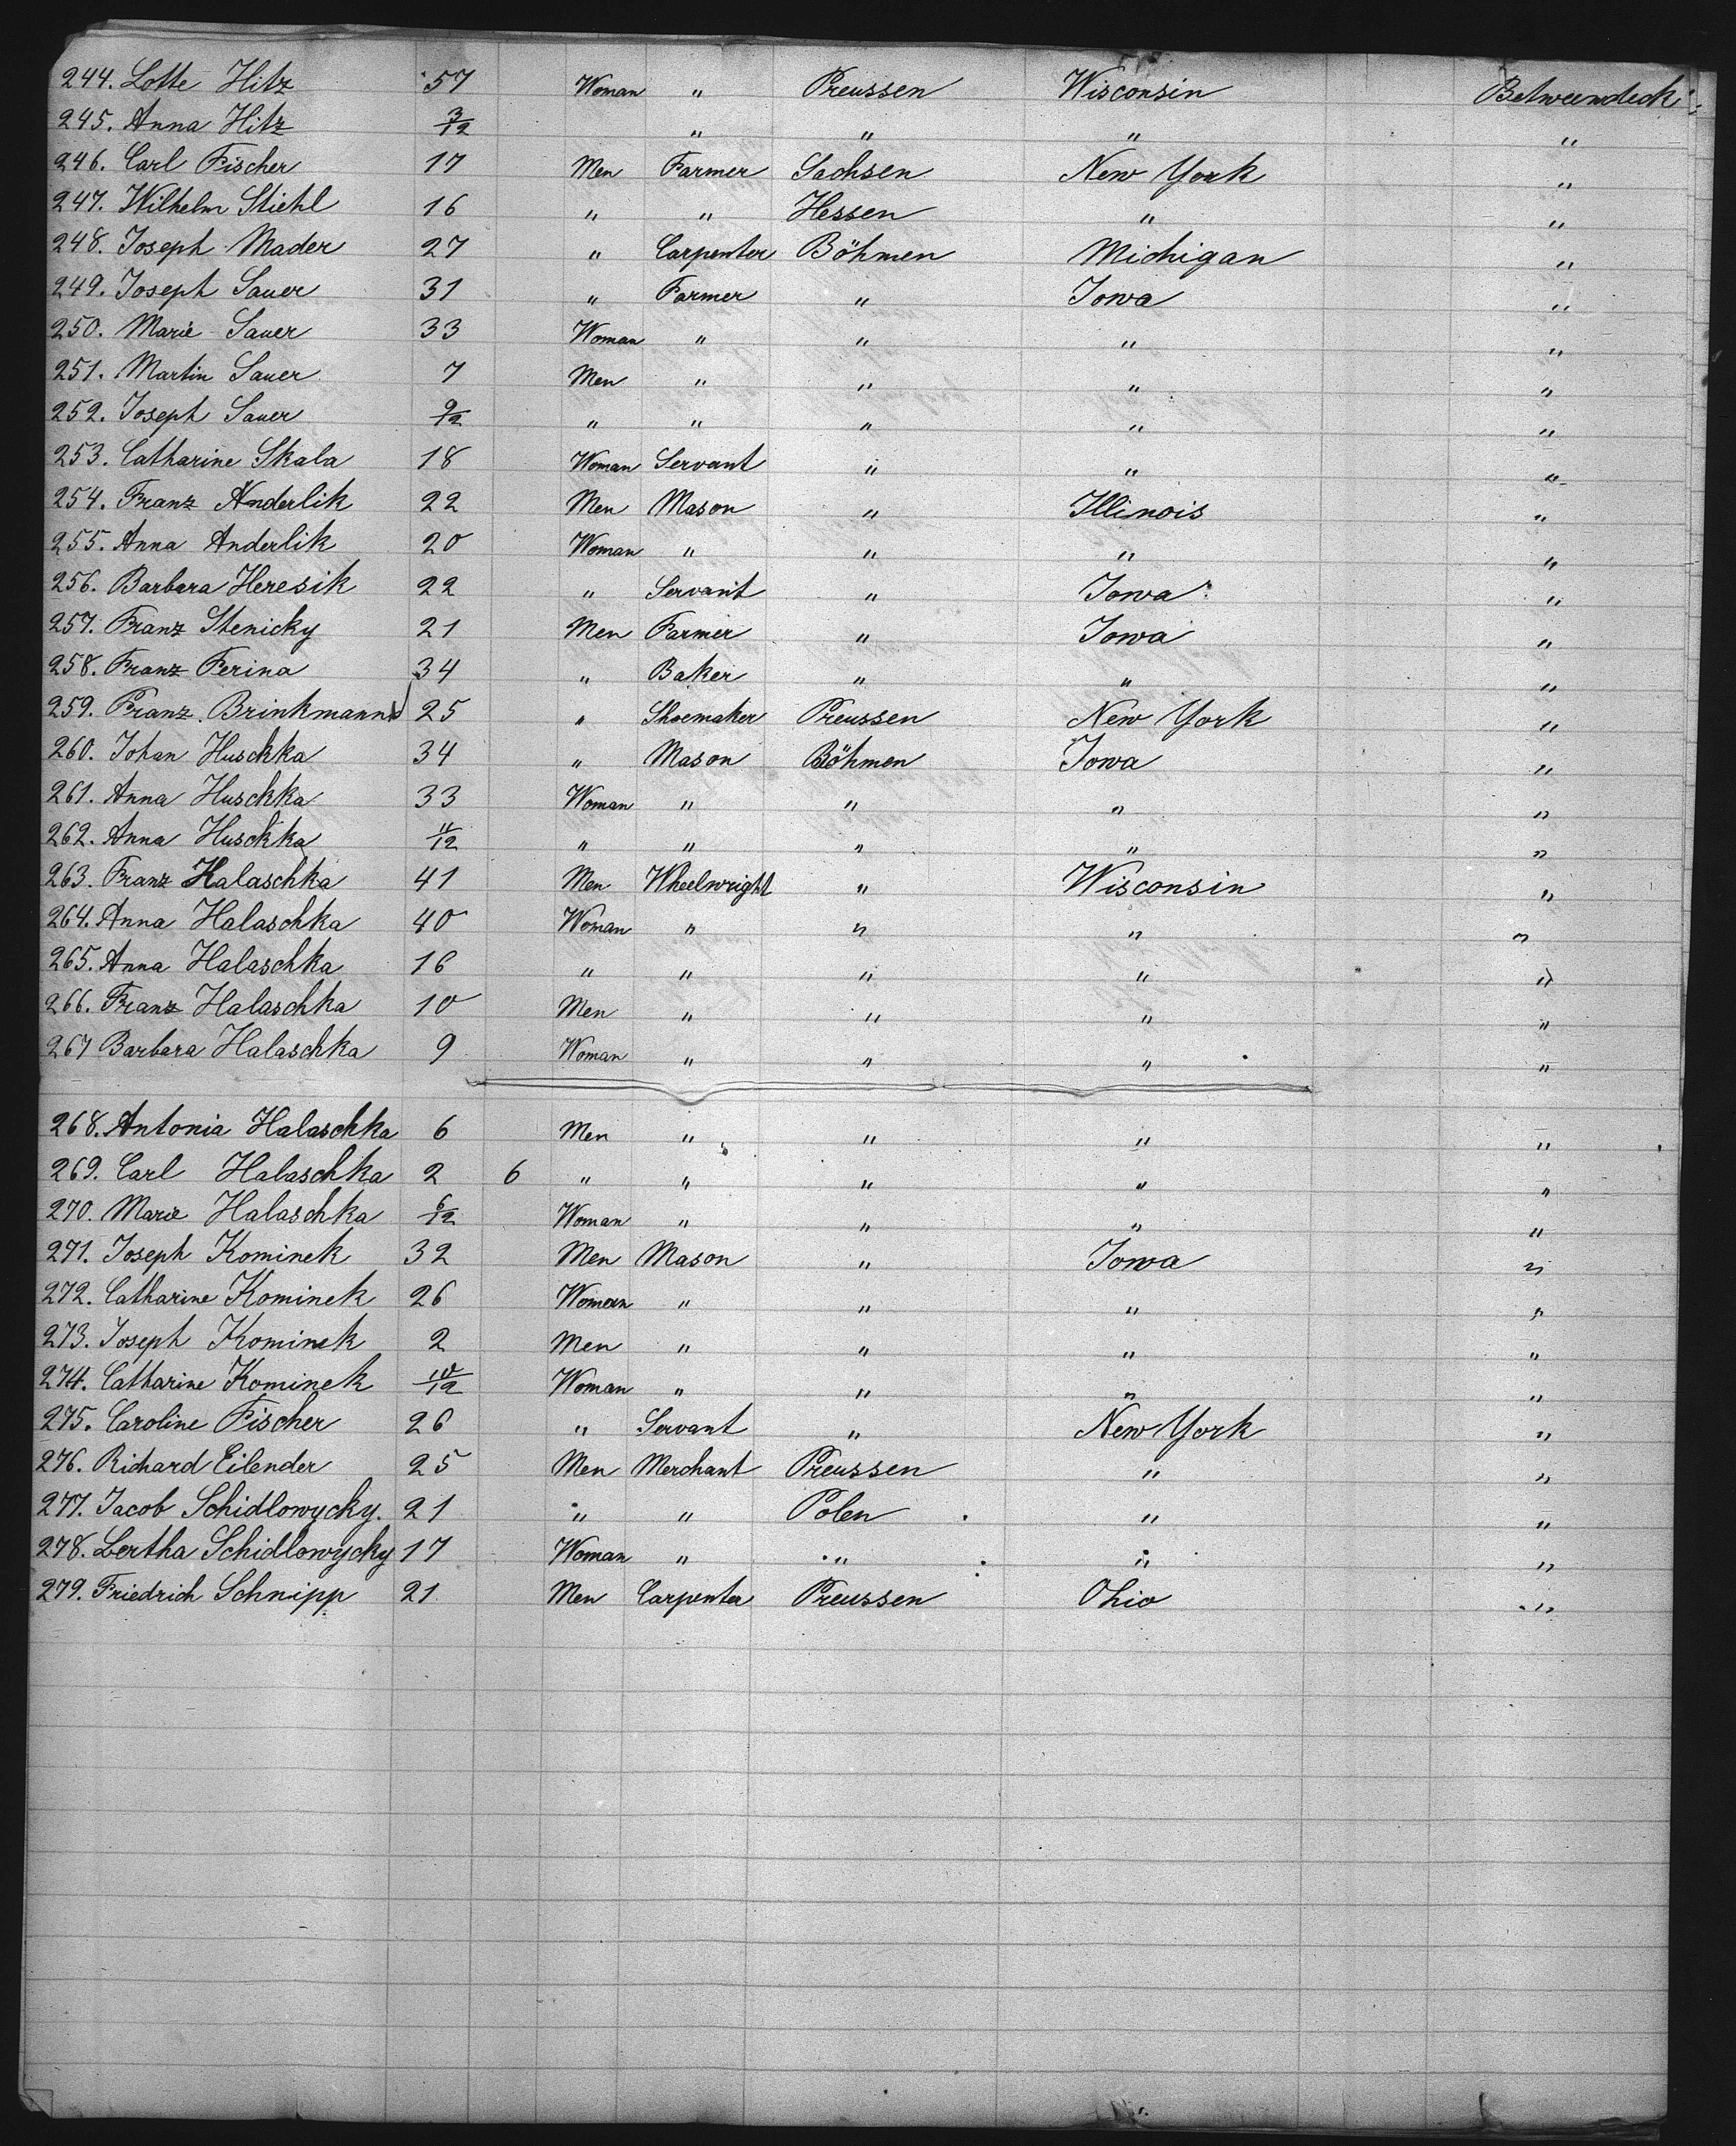 244. Lotte Hitz 57 Woman " Preussen Wisconsin Betweendeck
245. Anna Hitz 3/12 " " " "
246. Carl Fischer 17 Men Farmer Sachsen New York "
247. Wilhelm Stiehl 16 " " Hessen " "
248. Joseph Mader 27 " Carpenter Böhmen Michigan "
249. Joseph Sauer 31 " Farmer " Iowa "
250. Marie Sauer 33 Woman " " " "
251. Martin Sauer 7 Men " " " "
252. Joseph Sauer 9/12 " " " " "
253. Catharine Skala 18 Woman Servant " " "
254. Franz Anderlik 22 Men Mason " Illinois "
255. Anna Anderlik 20 Woman " " " "
256. Barbara Heresik 22 " Servant " Iowa "
257. Franz Stenicky 21 Men Farmer " Iowa "
258. Franz Ferina 34 " Baker " " "
259. Franz Brinkmann 25 " Shoemaker Preussen New York "
260. Johan Huschka 34 " Mason Böhmen Iowa "
261. Anna Huschka 33 Woman " " " "
262. Anna Huschka 11/12 " " " " "
263. Franz Halaschka 41 Men Wheelwright " Wisconsin "
264. Anna Halaschka 40 Woman " " " "
265. Anna Halaschka 16 " " " " "
266. Franz Halaschka 10 Men " " " "
267 Barbara Halaschka 9 Woman " " " "
268. Antonia Halaschka 6 Men " " " "
269. Carl Halaschka 2 6 " " " " "
270. Marie Halaschka 6/12 Woman " " " "
271. Joseph Kominek 32 Men Mason " Iowa "
272. Catharine Kominek 26 Woman " " " "
273. Joseph Kominek 2 Men " " " "
274. Catharine Kominek 10/12 Woman " " " "
275. Caroline Fischer 26 " Servant " New York "
276. Richard Eilender 25 Men Merchant Preussen " "
277. Jacob Schidlowycky. 21 " " Polen " "
278. Bertha Schidlowycky 17 Woman " " " "
279. Friedrich Schnipp 21 Men Carpenter Preussen Ohio "